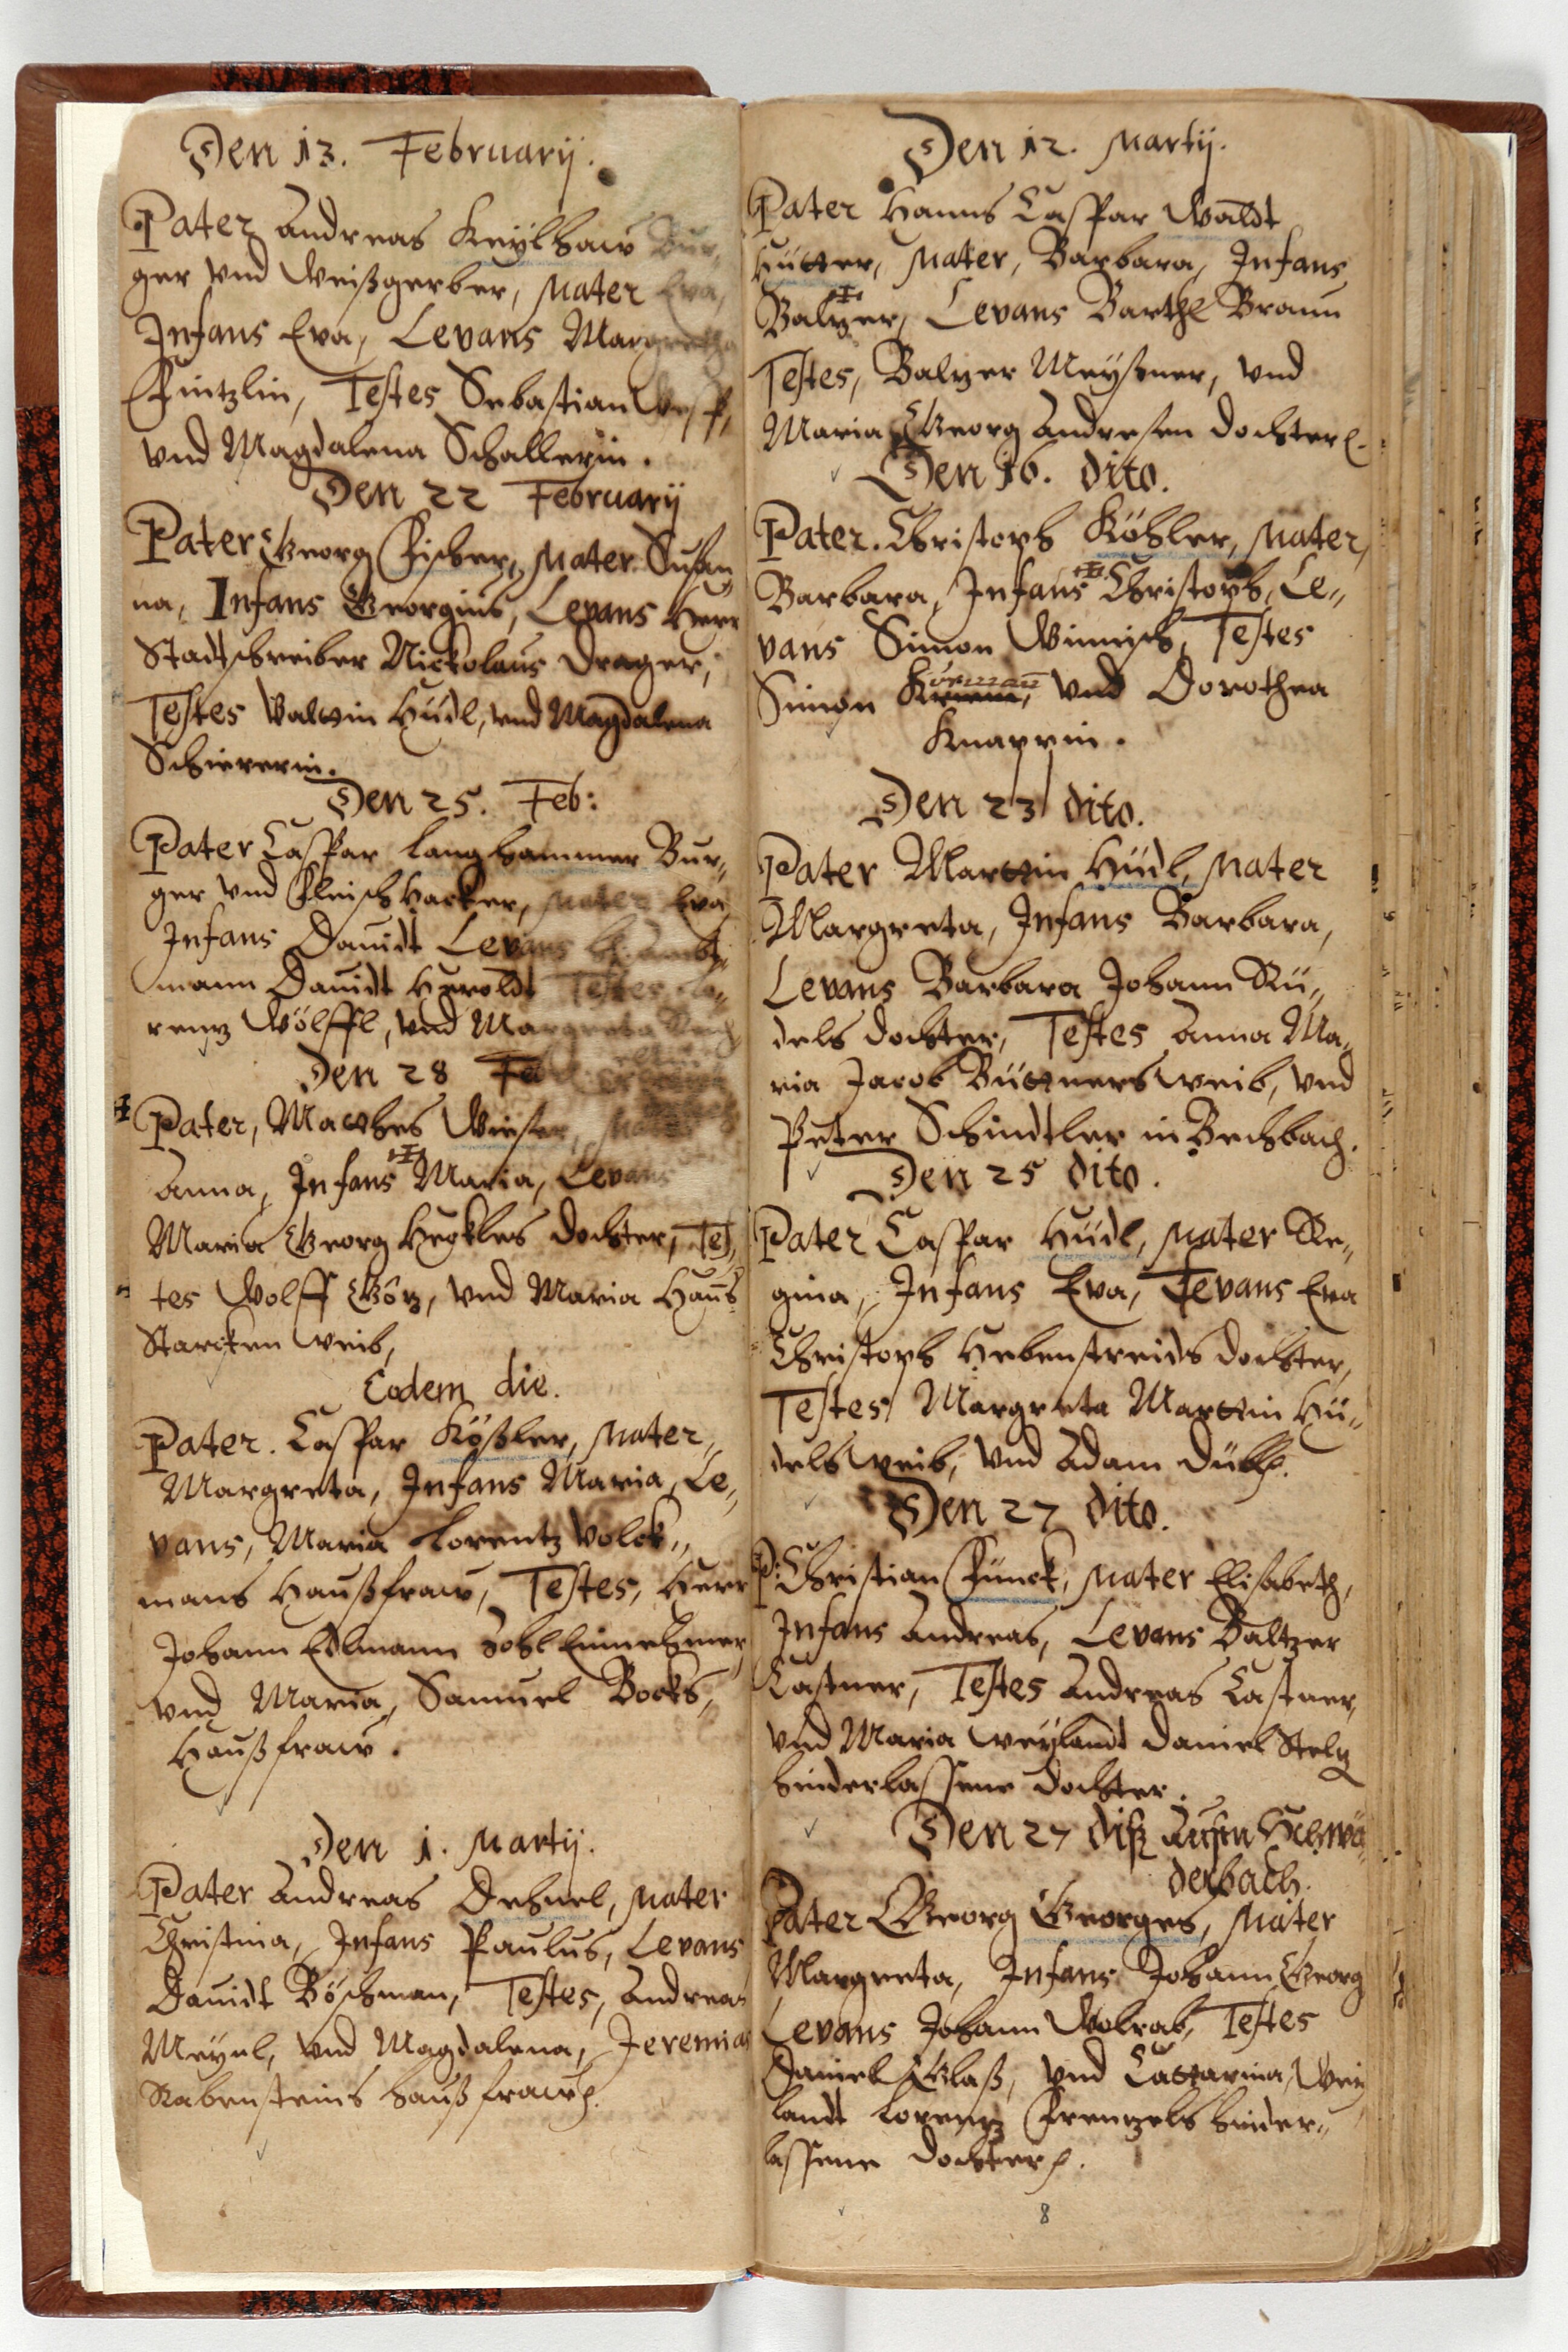 Den 13. Februarij.
Pater Andreas Keylhaw Bur,,
ger vnd Weißgerber, Mater Eva,
Infans Eva, Levans Margretha
Fintzlin, Testes Sebastian
vnd Magdalena Schallerin.
Den 22 Februarij
Pater Georg Fischer, Mater Susan,,
na, Infans Georgius, Levans Herr
Stadtschreiber Nickolaus Drager,
Testes Valtin Hüdl, vnd Magdalena
Schiererin.
Den 25. Feb:
Pater Caspar Langhammer Bur,,
ger vnd Fleischhacker, Mater Eva
Infans Dauidt Levans H. Ambt,,
mann Dauidt Heroldt Testes Lo,,
rentz Wölffl, vnd Margreta
Den 28 Feb
Pater, Matthes Winter, Mater
Anna, Infans Maria, Levans
Maria Georg Heckles dochter, Tes,,
tes Wolff Götz, vnd Maria Hanß
Starcken weib,
Eodem die.
Pater. Caspar Kößler, Mater,,
Margreta, Infans Maria, Le,,
vans, Maria Lorentz Volck,,
mans Haußfraw, Testes, Herr
Johann Edlmann Zohl Einnehmer,
vnd Maria, Samuel Bocks,
Haußfraw.
Den 1. Martij.
Pater Andreas Dehnel, Mater
Christina, Infans Paulus, Levans
Dauidt Böschman, Testes, Andreas
Meynl, vnd Magdalena, Jeremias
Rabensteins haußfraw.
Den 12. Martij.
Pater Hanns Caspar Waldt
Hütter, Mater, Barbara, Infans
Baltzer, Levans Barthl Braun
Testes, Baltzer Meyßner, vnd
Maria Georg Andresen dochter.
Den 16. dito.
Pater. Christoph Köhler, Mater,
Barbara, Infans Christoph, Le,,
vans Simon Winnisch, Testes
Simon Körman, vnd Dorothea
Knappin.
Den 23 dito.
Pater Martin Hüdl, Mater
Margreta, Infans Barbara,
Levans Barbara Johann Rü,,
dels dochter, Testes Anna Ma,,
ria Jacob Büttners weib, vnd
Peter Schindtler in Bechbach.
Den 25 dito.
Pater Caspar Hüdl, Mater Re,,
gina, Infans Eva, Levans Eva
Christoph Hebenstreids dochter,
Testes Margreta Martin Hü,,
dels weib, vnd Adam
Den 27 dito.
P: Christian Fünck, Mater Elisabeth,
Infans Andreas, Levans Baltzer
Castner, Testes Andreas Castner,
vnd Maria weylandt Daniel Steltz
hinderlassene dochter.
Den 27 diß
derbach.
Pater Georg Georges, Mater
Margreta, Infans Johann Georg
Levans Johann Volrab, Testes
Daniel Glaß, vnd Cattarina, Wey
landt Lorentz Frentzels hinder,,
lassene dochter.
8